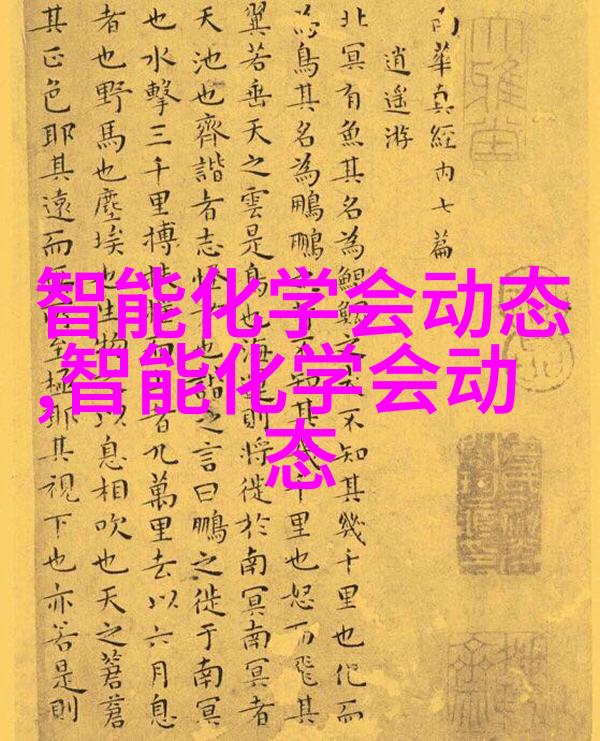 南華真經内七篇
逍遥游
北冥有魚其名為鯤鯤之大不知其幾千里也化而
為鳥其名為鵬鵬之背不知其幾千里也怒而飛其
翼若垂天之雲是鳥也海運則將徙於南冥南冥者
天池也齊諧者志怪者也諧之言曰鵬之徙于南冥
也水擊三千里搏扶摇而上者九萬里去以六月息
者也野馬也塵埃也生物之以息相吹也天之蒼蒼
其正色耶其遠而無所至極耶其視下也亦若是則
智能化学会动态
,智能化学会动
态